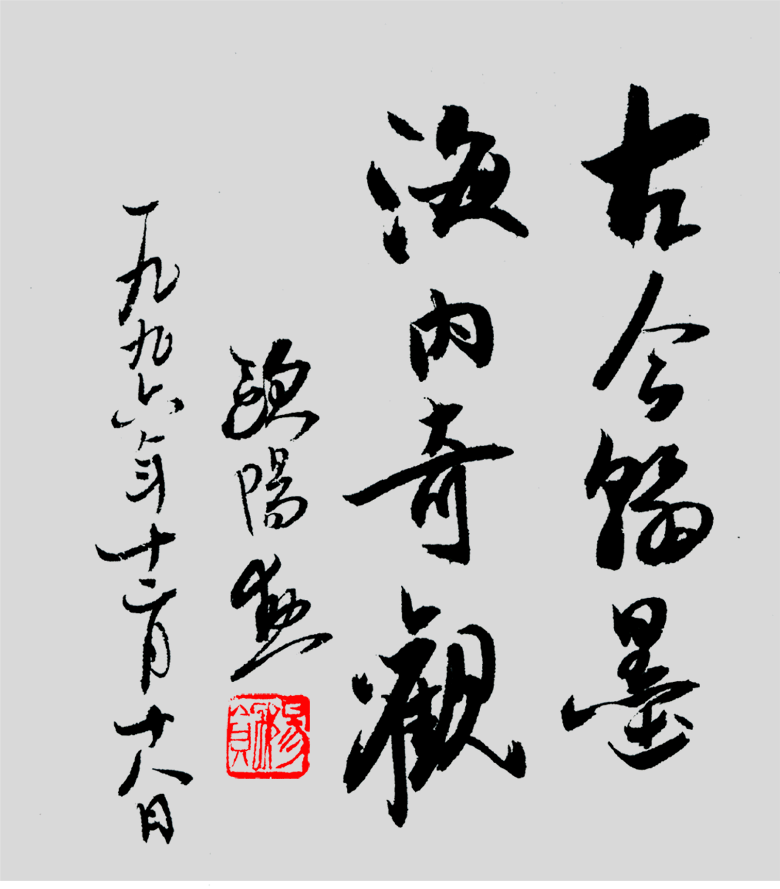 古今翰墨
海内奇觀
歐陽勳
一九九六年十二月十八日